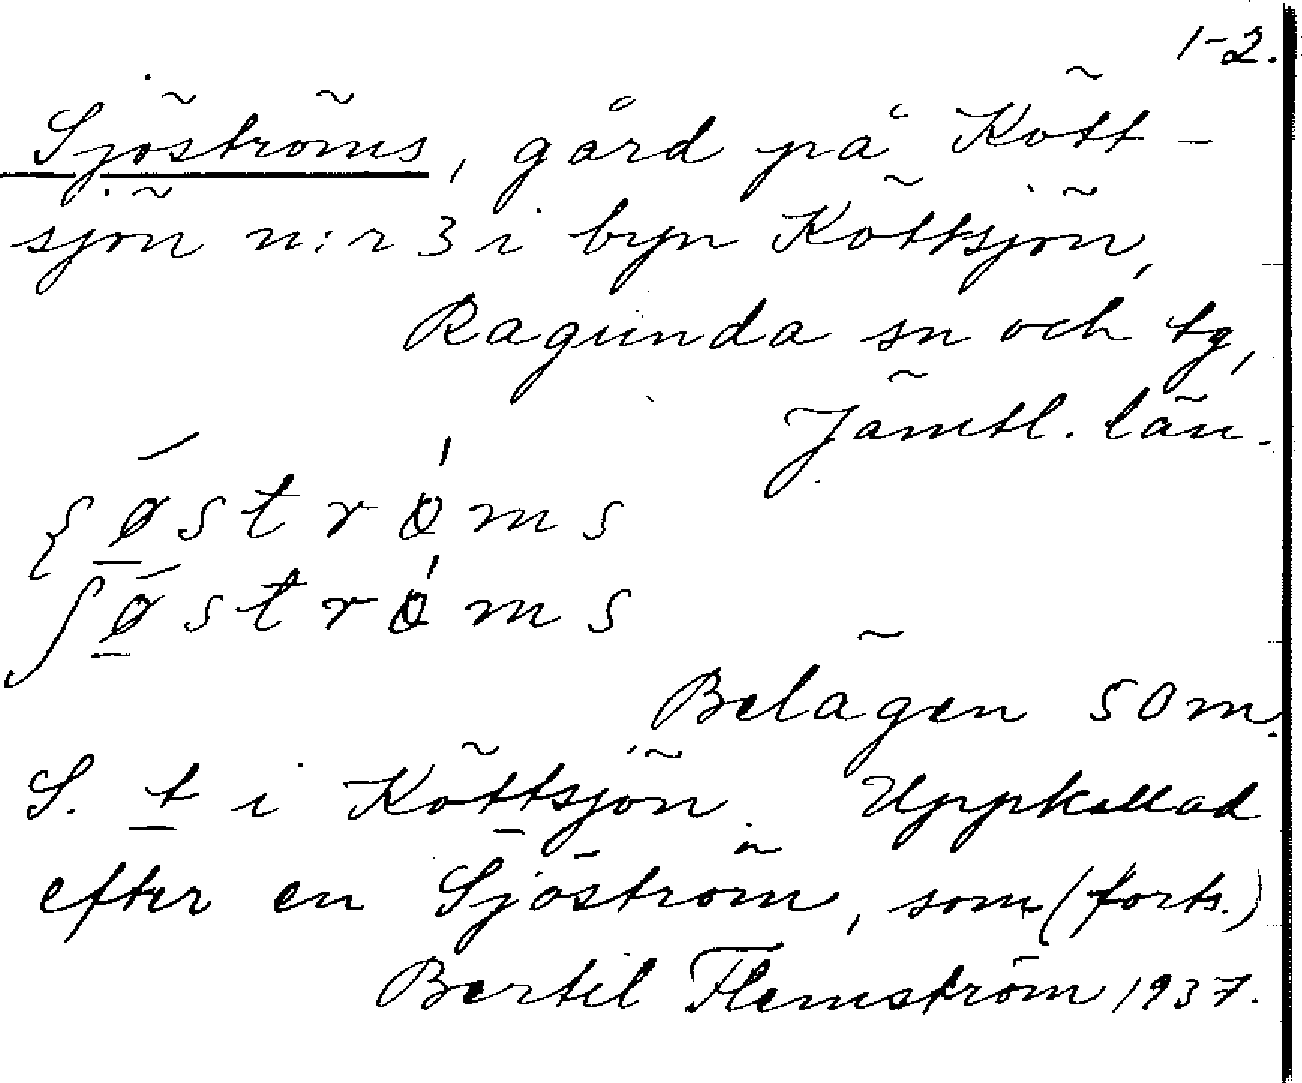 1-2.
Sjöströms, gård på Kött-
sjön n:r 3 i byn Köttsjön,
Ragunda sn och tg,
Jämtl. län.
S. t i Köttsjön. Uppkallad
Belägen 50 m.
efter en Sjöström, som (forts.)
Bertil Flemström 1937.